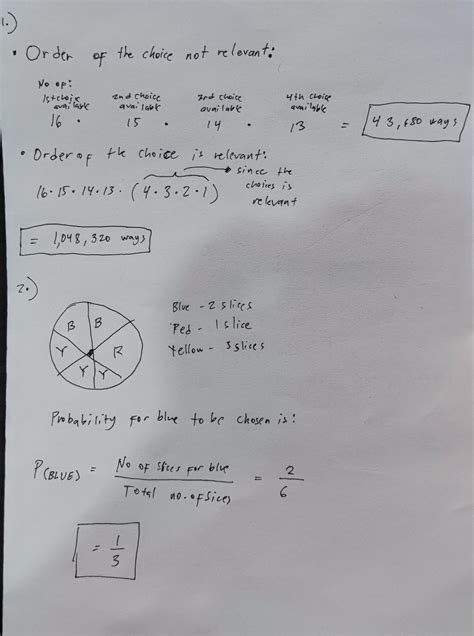 1.)
• Order of the choice not relevant:
No of:
1st choice available 2nd choice available 3rd choice available 4th choice available
16 • 15 • 14 • 13 = 43,680 ways
• Order of the choice is relevant:
16 • 15 • 14 • 13 • (4 • 3 • 2 • 1) → since the choices is relevant
= 1,048,320 ways
2.)
B B
Y R
Y Y
Blue - 2 slices
Red - 1 slice
Yellow - 3 slices
Probability for blue to be chosen is:
P(BLUE) = No of slices for blue / Total no. of slices = 2/6
= 1/3